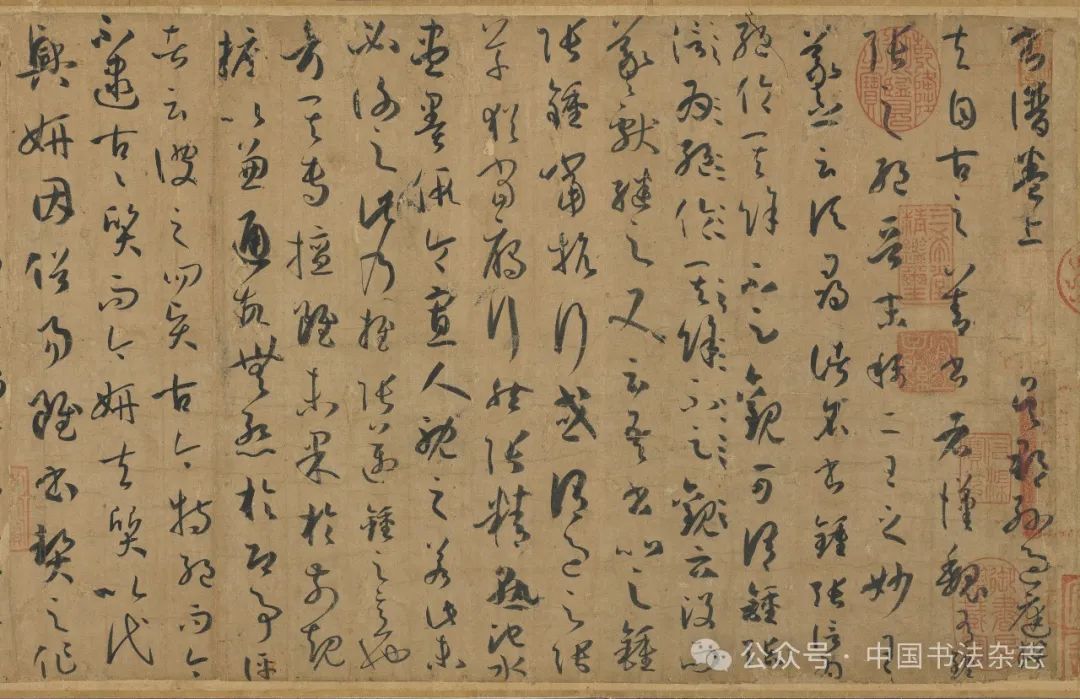 書譜卷上 吳郡孫過庭撰
夫自古之善書者漢魏有鍾
張之絕晉末稱二王之妙王
羲之云頃尋諸名書鍾張信為
絕倫其餘不足觀可謂鍾張
信為絕倫其餘不足觀云沒而
羲獻繼之又云吾書比之鍾
張鍾當抗行或謂過之張
草猶當鴈行然張精熟池水
盡墨假令寡人耽之若此未
必謝之此乃推張邁鍾之意也
考其專擅雖未果於前規
摭以兼通故無慙於即事評
者云彼之四賢古今特絕而今
不逮古々質而今妍夫質以代
興妍因俗易雖書契之作
公众号 · 中国书法杂志